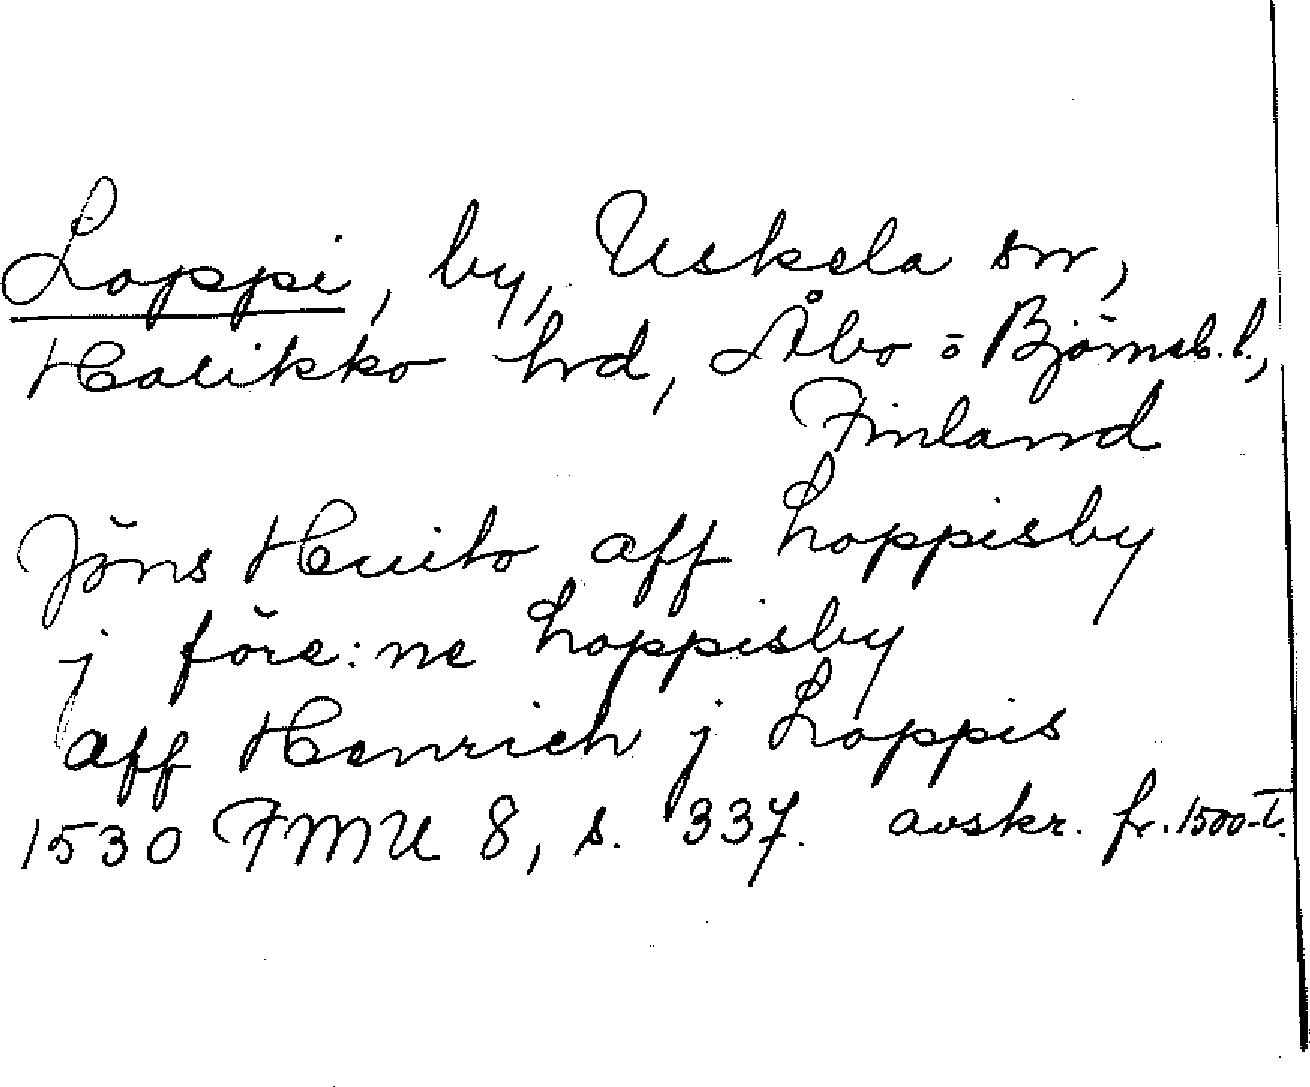 Loppi, by, Uskela sn,
Halikko hrd, Åbo o Björneb. l.,
Finland
Jöns Huito aff Loppisby
j före:ne Loppisby
aff Henrich j Loppis
1530 FMU 8, s. 337. avskr. fr. 1500-t.